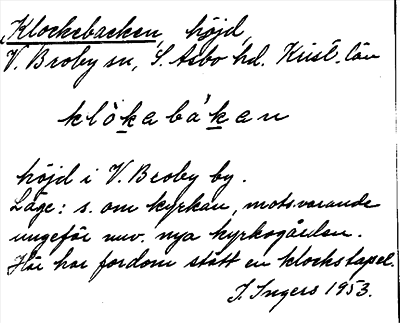 Klockebacken, höjd,
V. Broby sn, S. Åsbo hd. Krist. län
klò̱kabá̱kan
höjd i V. Broby by.
Läge: s. om kyrkan, motsvarande
ungefär nuv. nya kyrkogården.
Här har fordom stått en klockstapel.
I. Ingers 1953.